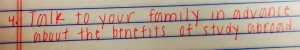 4. Talk to your family in advance
about the benefits of study abroad.